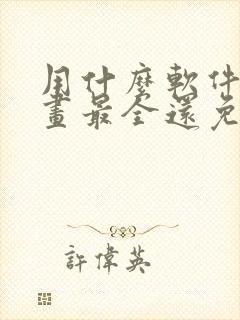 用什麼軟件
畫最全還免
許偉英